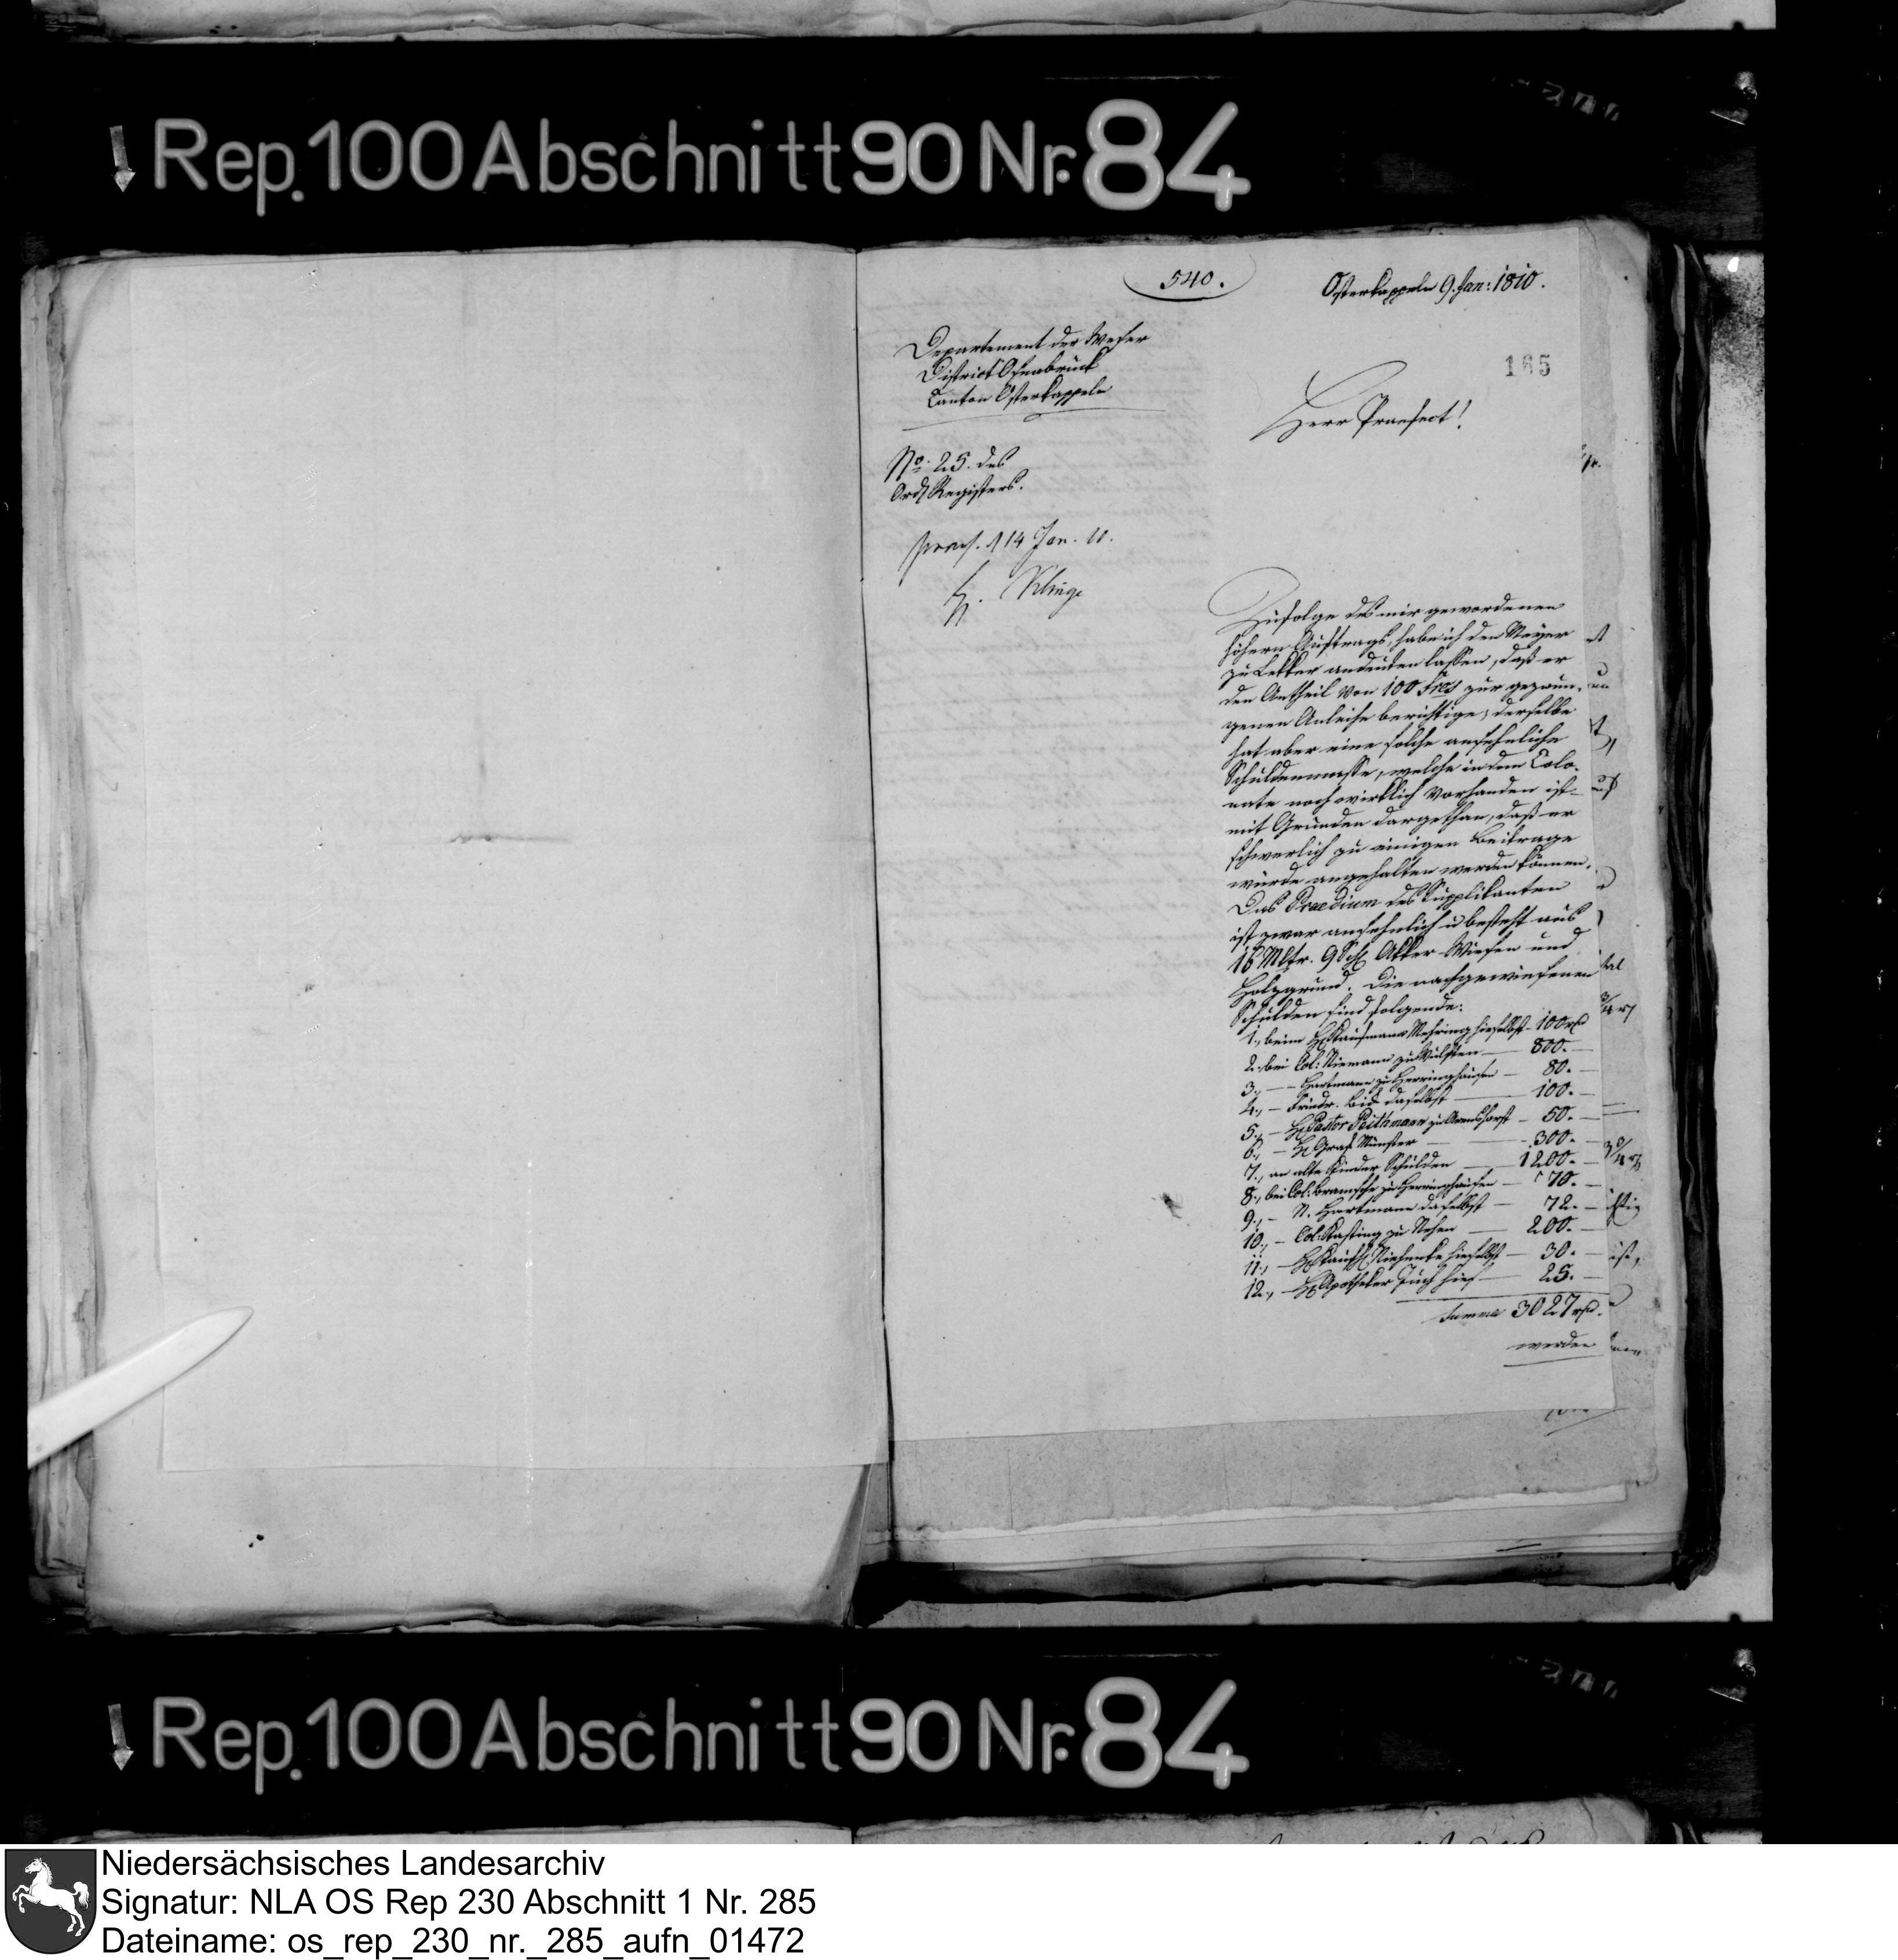 Rep. 100 Abschnitt 90 Nr. 84
540.
Osterkappeln 9. Jan: 1810.
165
Departement der Weser
District Osnabrück
Canton Osterkappeln
No. 25. des
Ord. Registers.
praes. d 14 Jan. 10.
H. Klinge
Herr Praefect!
Zufolge des mir gewordenen
höhern Auftrags, habe ich den Meyer
zu Lekker andeuten lassen, daß er
den Antheil von 100 Frcs zur gezwun-
genen Anleihe berichtige; derselbe
hat aber eine solche ansehnliche
Schuldenmasse, welche in dem Colo-
nate noch wirklich vorhanden ist
mit Gründen dargethan, daß er
schwerlich zu einigen Beitrage
würde angehalten werden können.
Das Praedium des Supplikanten
ist zwar ansehnlich u besteht aus
16 Mltr. 9 Sch Akker Wiesen und
Holzgrund. Die nachgewiesenen
Schulden sind folgende:
1., beim H Kaufmann Mehring hieselbst - 100 rth
2., bei Col: Niemann zu Wulften — 800. —
3., — Hartmann zu Herringhausen — 80. —
4., — Friedr. daselbst — 100. —
5., — H Pastor Peithmann zu Arenshorst — 50. —
6., — H Graf Münster — 300. —
7., an alte Kinder Schulden — 1200. —
8., bei Col: Bramsche zu Herringhausen — 70. —
9., — N. Hartmann daselbst — 72. —
10., — Col: Kasting zu — 200. —
11., — H Kaufh hieselbst — 30. —
12., — H Apotheker hies — 25. —
Summa 3027 rth.
werden
Rep. 100 Abschnitt 90 Nr. 84
Niedersächsisches Landesarchiv
Signatur: NLA OS Rep 230 Abschnitt 1 Nr. 285
Dateiname: os_rep_230_nr._285_aufn_01472